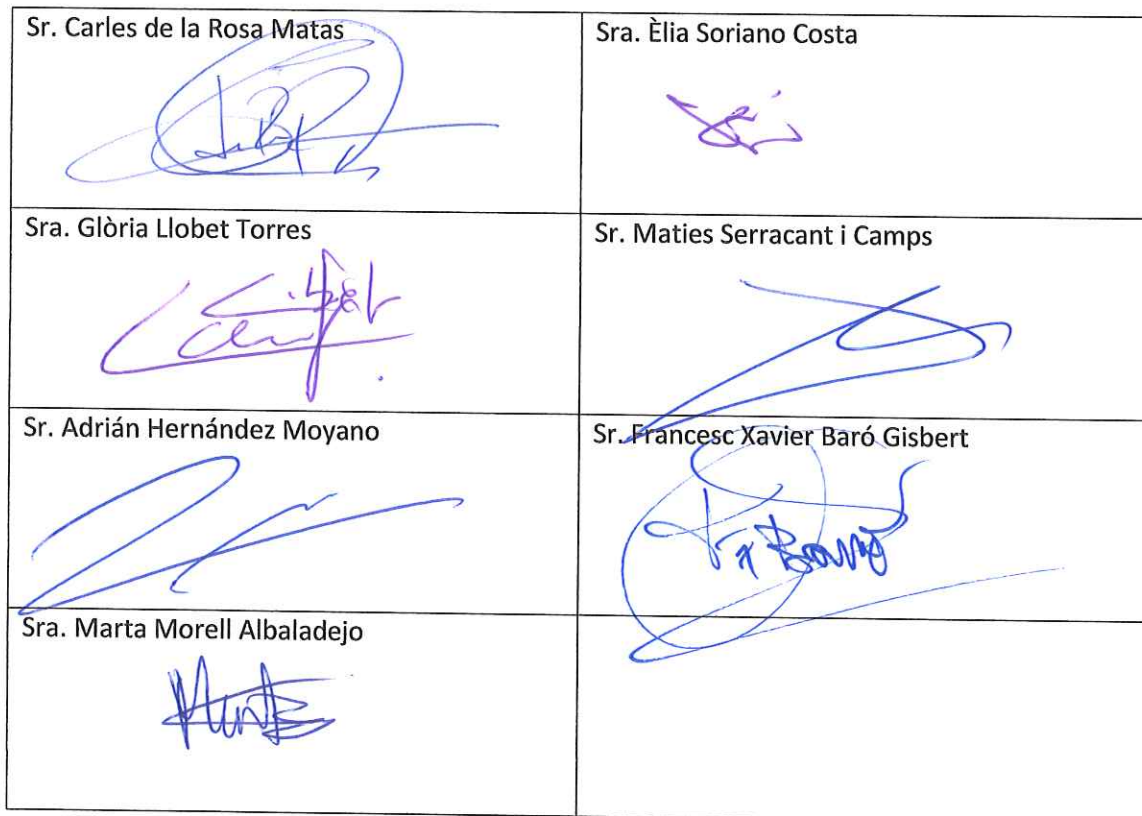 Sr. Carles de la Rosa Matas
Sra. Èlia Soriano Costa
Sra. Glòria Llobet Torres
Sr. Maties Serracant i Camps
Sr. Adrián Hernández Moyano
Sr. Francesc Xavier Baró Gisbert
Sra. Marta Morell Albaladejo